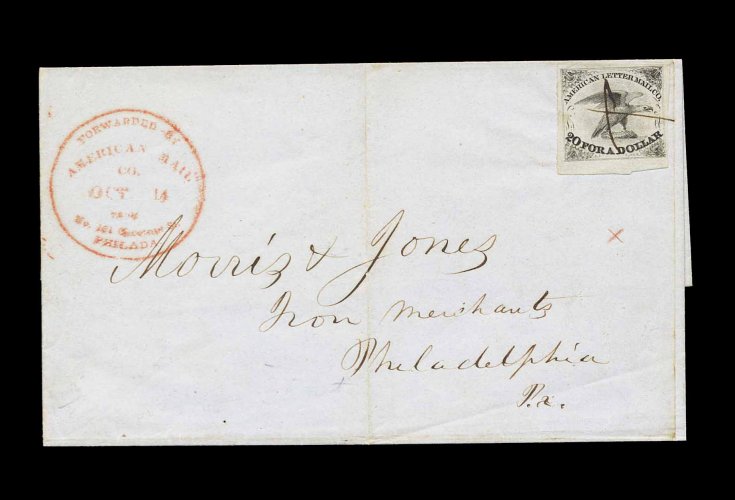 AMERICAN LETTER MAIL CO.
20 FOR A DOLLAR
FORWARDED BY
AMERICAN MAIL
CO.
OCT 14
No. 101
PHILADA
Morris & Jones
Iron Merchants
Philadelphia
Pa.